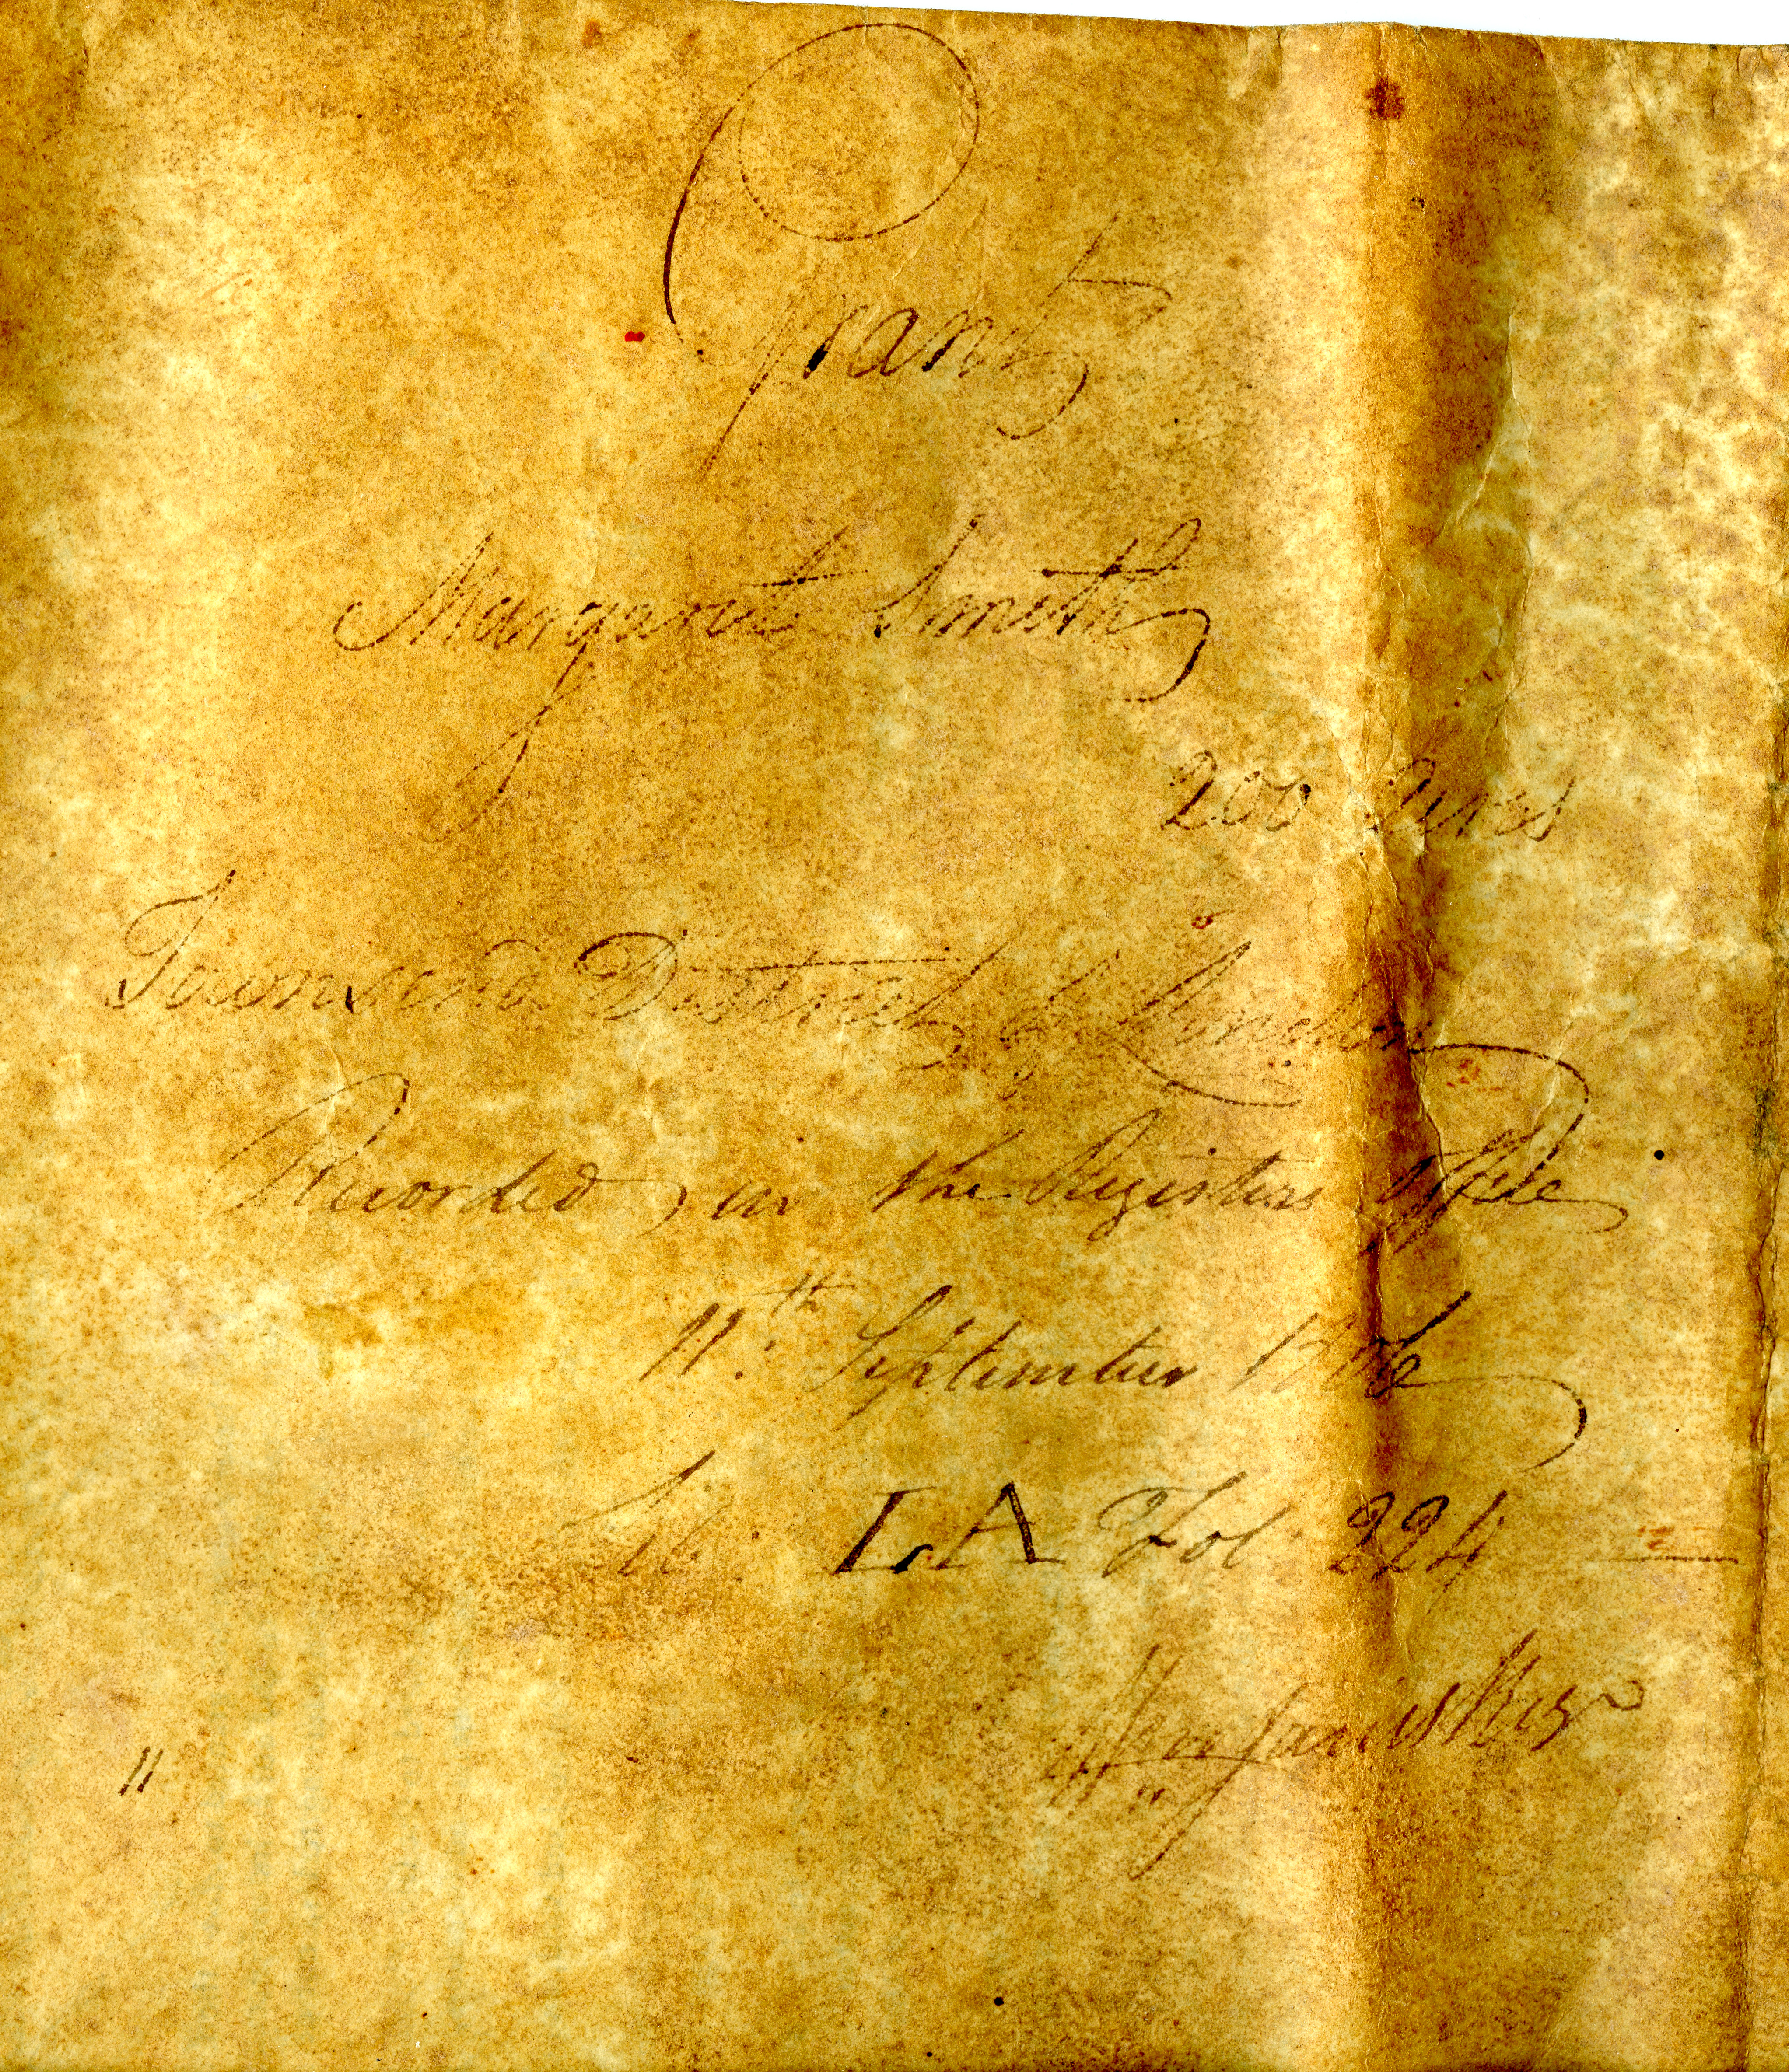 Grant
Margaret Smith
200 Acres
Townsend District of London
Recorded in the Registers Office
11th September
Lib LA Fol 224
Wm Jarvis Regr
"